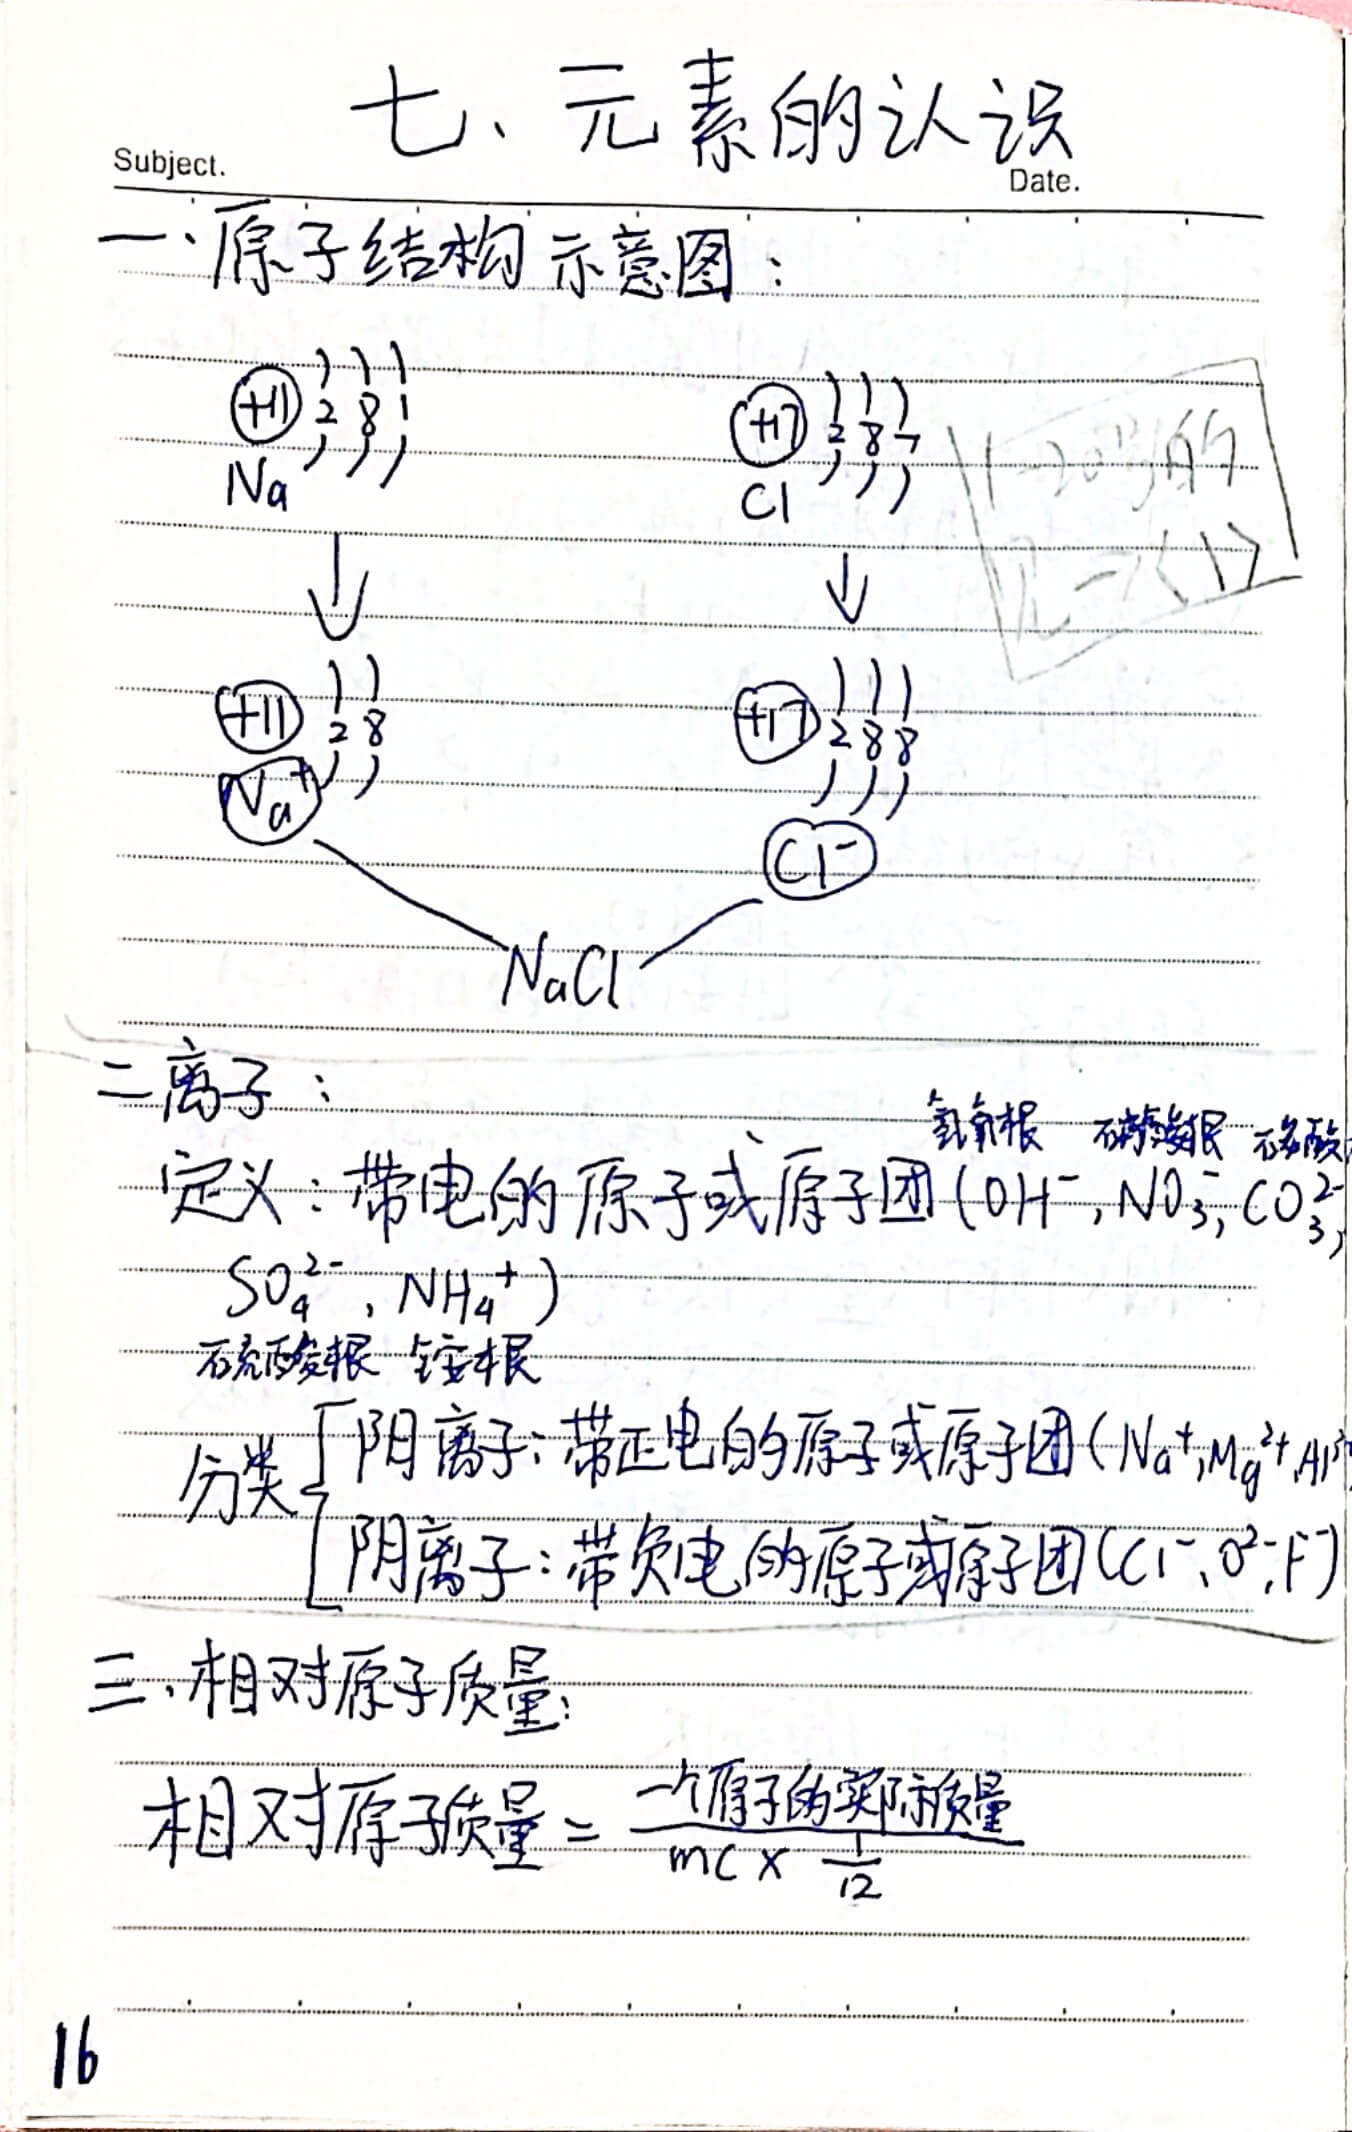 七、元素的认识
Subject.
Date.
一、原子结构示意图:
+11 2 8 1
Na
+17 2 8 7
Cl
1-20号的
+11 2 8
Na⁺
+17 2 8 8
Cl⁻
NaCl
二 离子:
氢氧根 硝酸根
定义:带电的原子或原子团(OH⁻,NO₃⁻,CO₃²⁻,
SO₄²⁻,NH₄⁺)
硫酸根 铵根
分类
阳离子:带正电的原子或原子团(Na⁺,Mg²⁺,Al³⁺
阴离子:带负电的原子或原子团(Cl⁻,O²⁻,F⁻)
三、相对原子质量:
相对原子质量 = 一个原子的实际质量
mC × 1/12
16